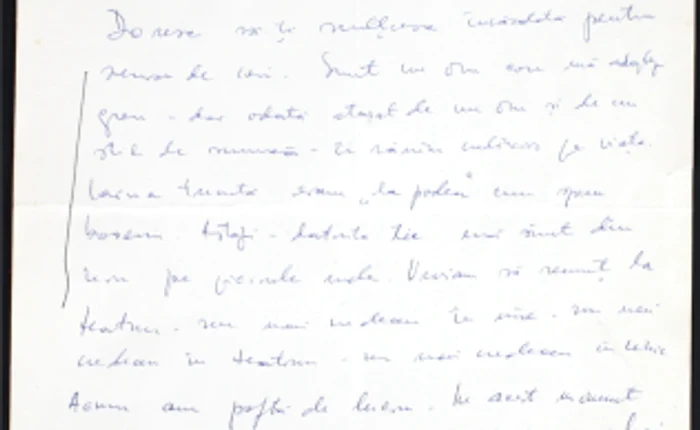 Doresc să-ți mulțumesc încăodată pentru
de ieri. Sunt un om care mă
greu - dar odată atașat de un om și de un
stil de muncă - îi rămîn credincios pe viață.
Iarna trecută eram „la podea" cum spun
boxerii - datorită ție sunt din
nou pe picioarele mele. Voiam să renunț la
teatru - nu mai credeam în mine - nu mai
credeam în teatru - nu mai credeam în
Acum am poftă de lucru. În acest moment